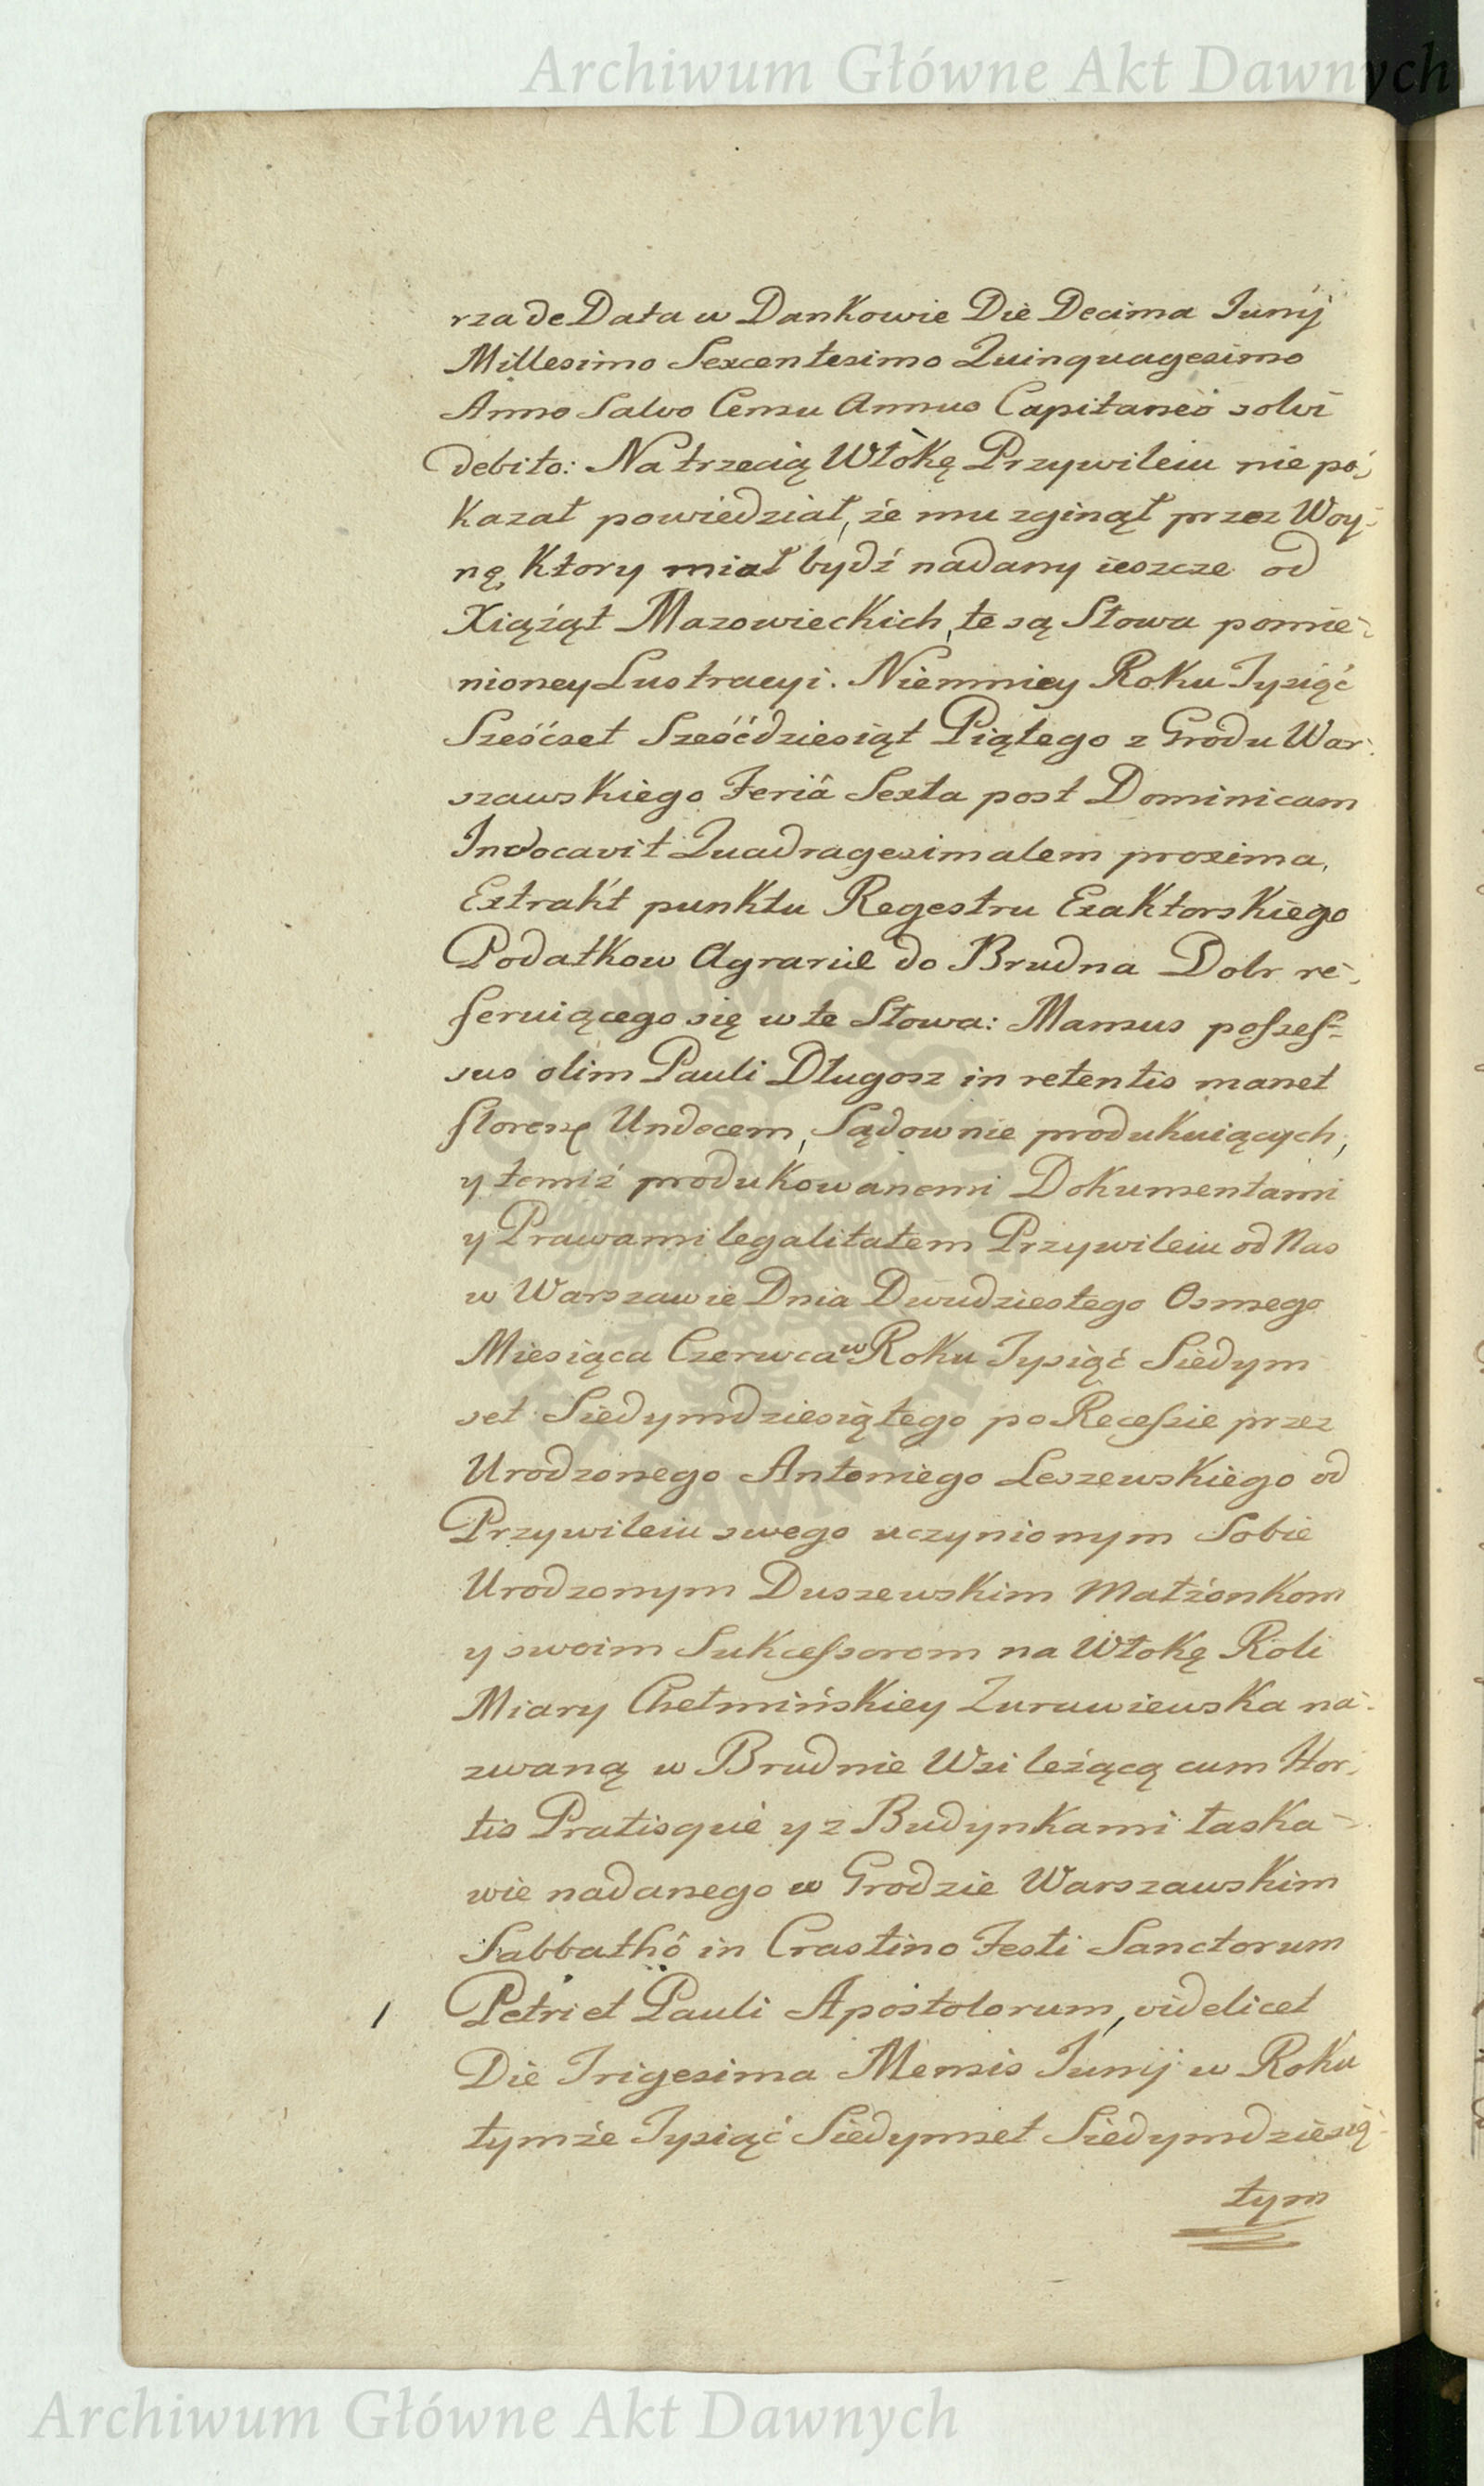 Archiwum Główne Akt Dawnych
rza de Data w Dankowie Die Decima Junij
Millesimo Sexcentesimo Quinquagesimo
Anno Salvo Censu Annuo Capitaneo solvi
debito: Na trzecią Włókę Przywileiu nie po-
kazał powiedział, że mu zginął przez Woy-
nę, Ktory miał bydź nadany ieszcze od
Xiążąt Mazowieckich, te są Słowa pomie-
nioney Lustracyi. Niemniey Roku Tysiąc
Sześćset Sześćdziesiąt Piątego z Grodu War-
szawskiego Feriâ Sexta post Dominicam
Invocavit Quadragesimalem proxima,
Extrakt punktu Regestru Exaktorskiego
Podatkow Agrariæ do Brudna Dobr re-
feruiącego się w te Słowa: Mansus possess-
sus olim Pauli Długosz in retentis manet
floren: Undecem, Sądownie produkuiących,
y temiż produkowanemi Dokumentami
y Prawami legalitatem Przywileiu od Nas
w Warszawie Dnia Dwudziestego Osmego
Miesiąca Czerwca w Roku Tysiąć Siedym
set Siedymdziesiątego po Recessie przez
Urodzonego Antoniego Leszewskiego od
Przywileiu swego uczynionym Sobie
Urodzonym Duszewskim Małżonkom
y swoim Sukcessorom na Włokę Roli
Miary Chełmińskiey Zurawiewska na-
zwaną w Brudnie Wsi leżącą cum Hor-
tis Pratisque y z Budynkami łaska-
wie nadanego w Grodzie Warszawskim
Sabbathô in Crastino Festi Sanctorum
/ Petri et Pauli Apostolorum, videlicet
Die Trigesima Mensis Junij w Roku
tymże Tysiąć Siedymset Siedymdziesią-
tym
Archiwum Główne Akt Dawnych